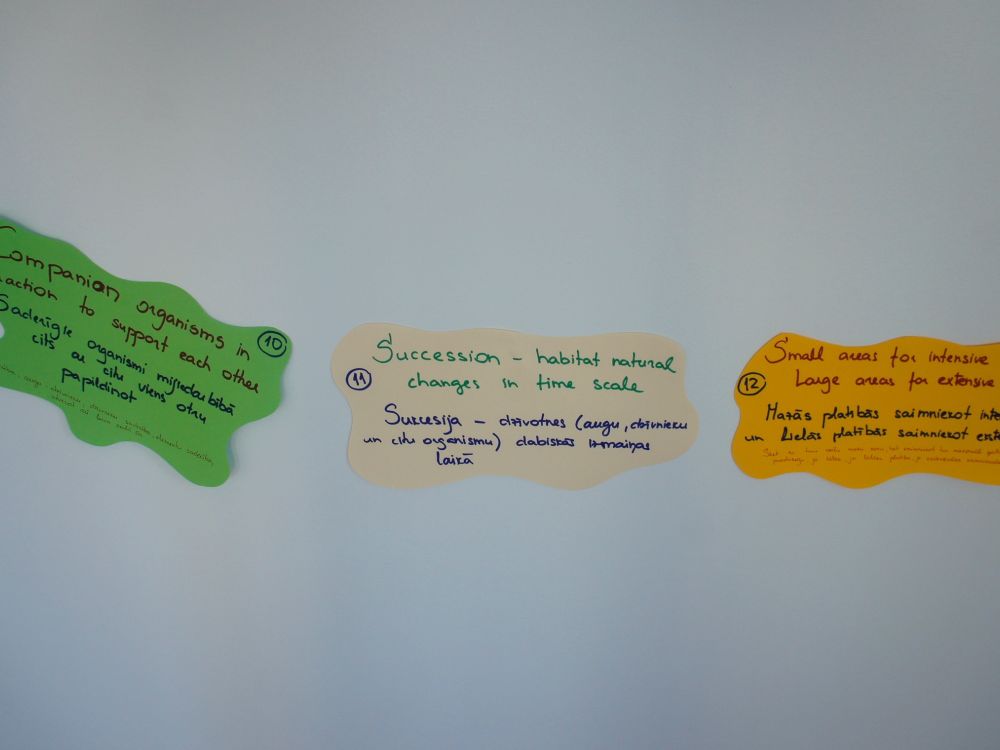 Companian organisms in
action to support each other
Saderīgie organismi mijiedarbībā
cits ar citu viens otru
papildinot
10
11
Succession - habitat natural
changes in time scale
Sukcesija - dzīvotnes (augu, dzīvnieku
un citu organismu) dabiskās izmaiņas
laikā
12
Small areas for intensive
Large areas for extensive
Mazās platībās saimniekot inte
un Lielās platībās saimniekot exte